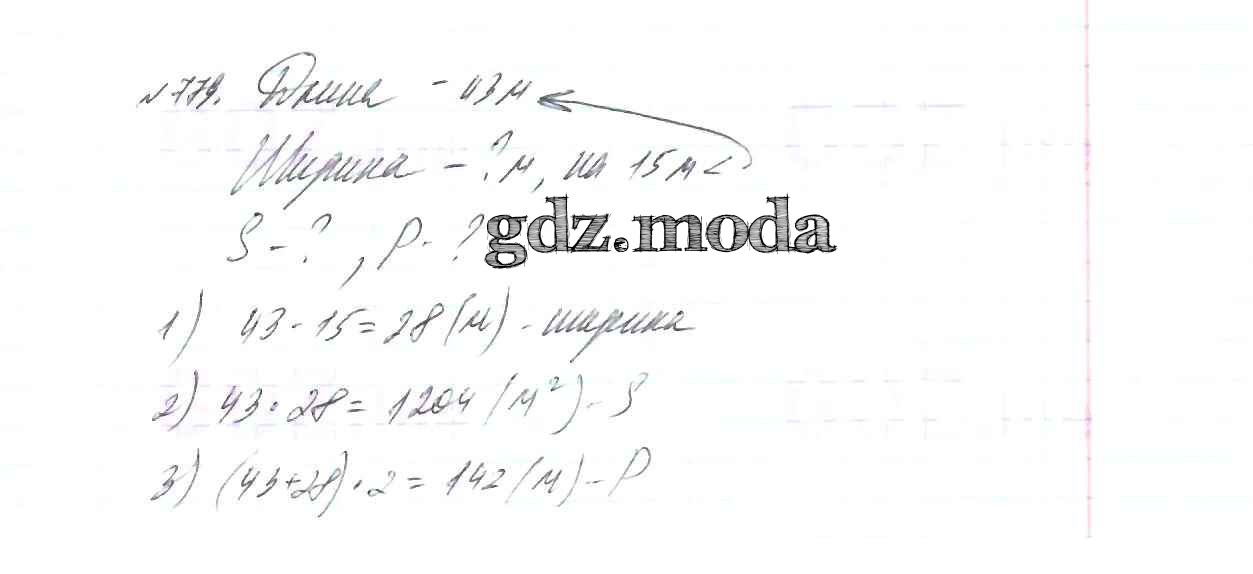 №779. Длина - 43м
Ширина - ?м, на 15м <
S - ?, P - ?
gdz.moda
1) 43 - 15 = 28 (м) - ширина
2) 43 · 28 = 1204 (м²) - S
3) (43+28) · 2 = 142 (м) - P